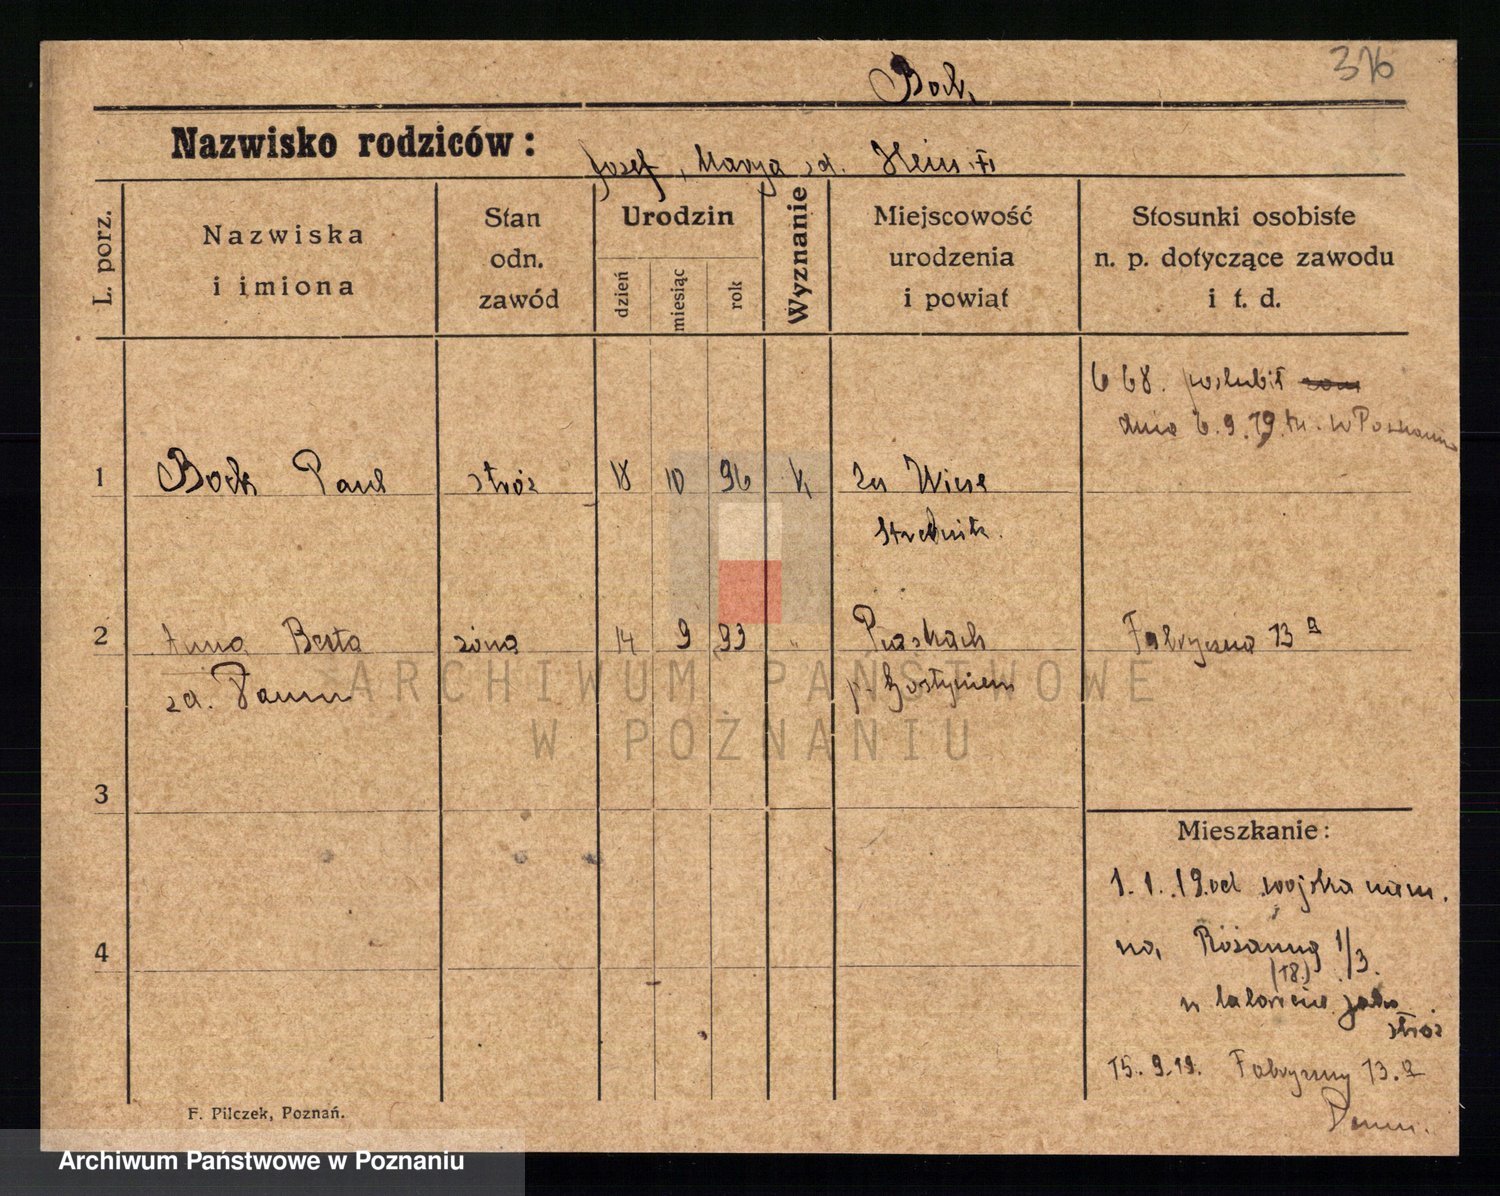 376
Bock
Nazwisko rodziców:
Josef, Marya zd.
L. porz.
Nazwiska
i imiona
Stan
odn.
zawód
Urodzin
dzień
miesiąc
rok
Wyznanie
Miejscowość
urodzenia
i powiat
Stosunki osobiste
n. p. dotyczące zawodu
i t. d.
668. poślubił
dnia 6.9.19 w Poznaniu
1 Bock Paul stróż 18 10 96 k Wiese
2 Anna Berta żona 14 9 93 " Piaskach Fabryczna 13 a
zd. p. Gostyniem
3
Mieszkanie:
1.1.19. od wojska niem.
na Różanną 1/3.
(18.)
u jako
stróż
4
15.9.19. Fabryczny 13.a
F. Pilczek, Poznań.
ARCHIWUM PAŃSTWOWE
W POZNANIU
Archiwum Państwowe w Poznaniu